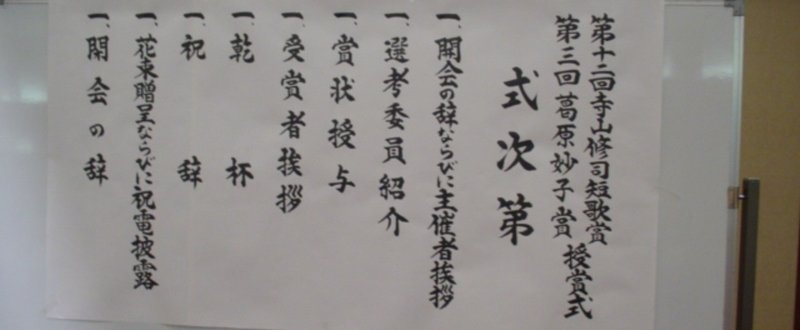 第十二回寺山修司短歌賞
第三回 葛原妙子賞 授賞式
式次第
一、開会の辞ならびに主催者挨拶
一、選考委員紹介
一、賞状授与
一、受賞者挨拶
一、乾杯
一、祝辞
一、花束贈呈ならびに祝電披露
一、閉会の辞